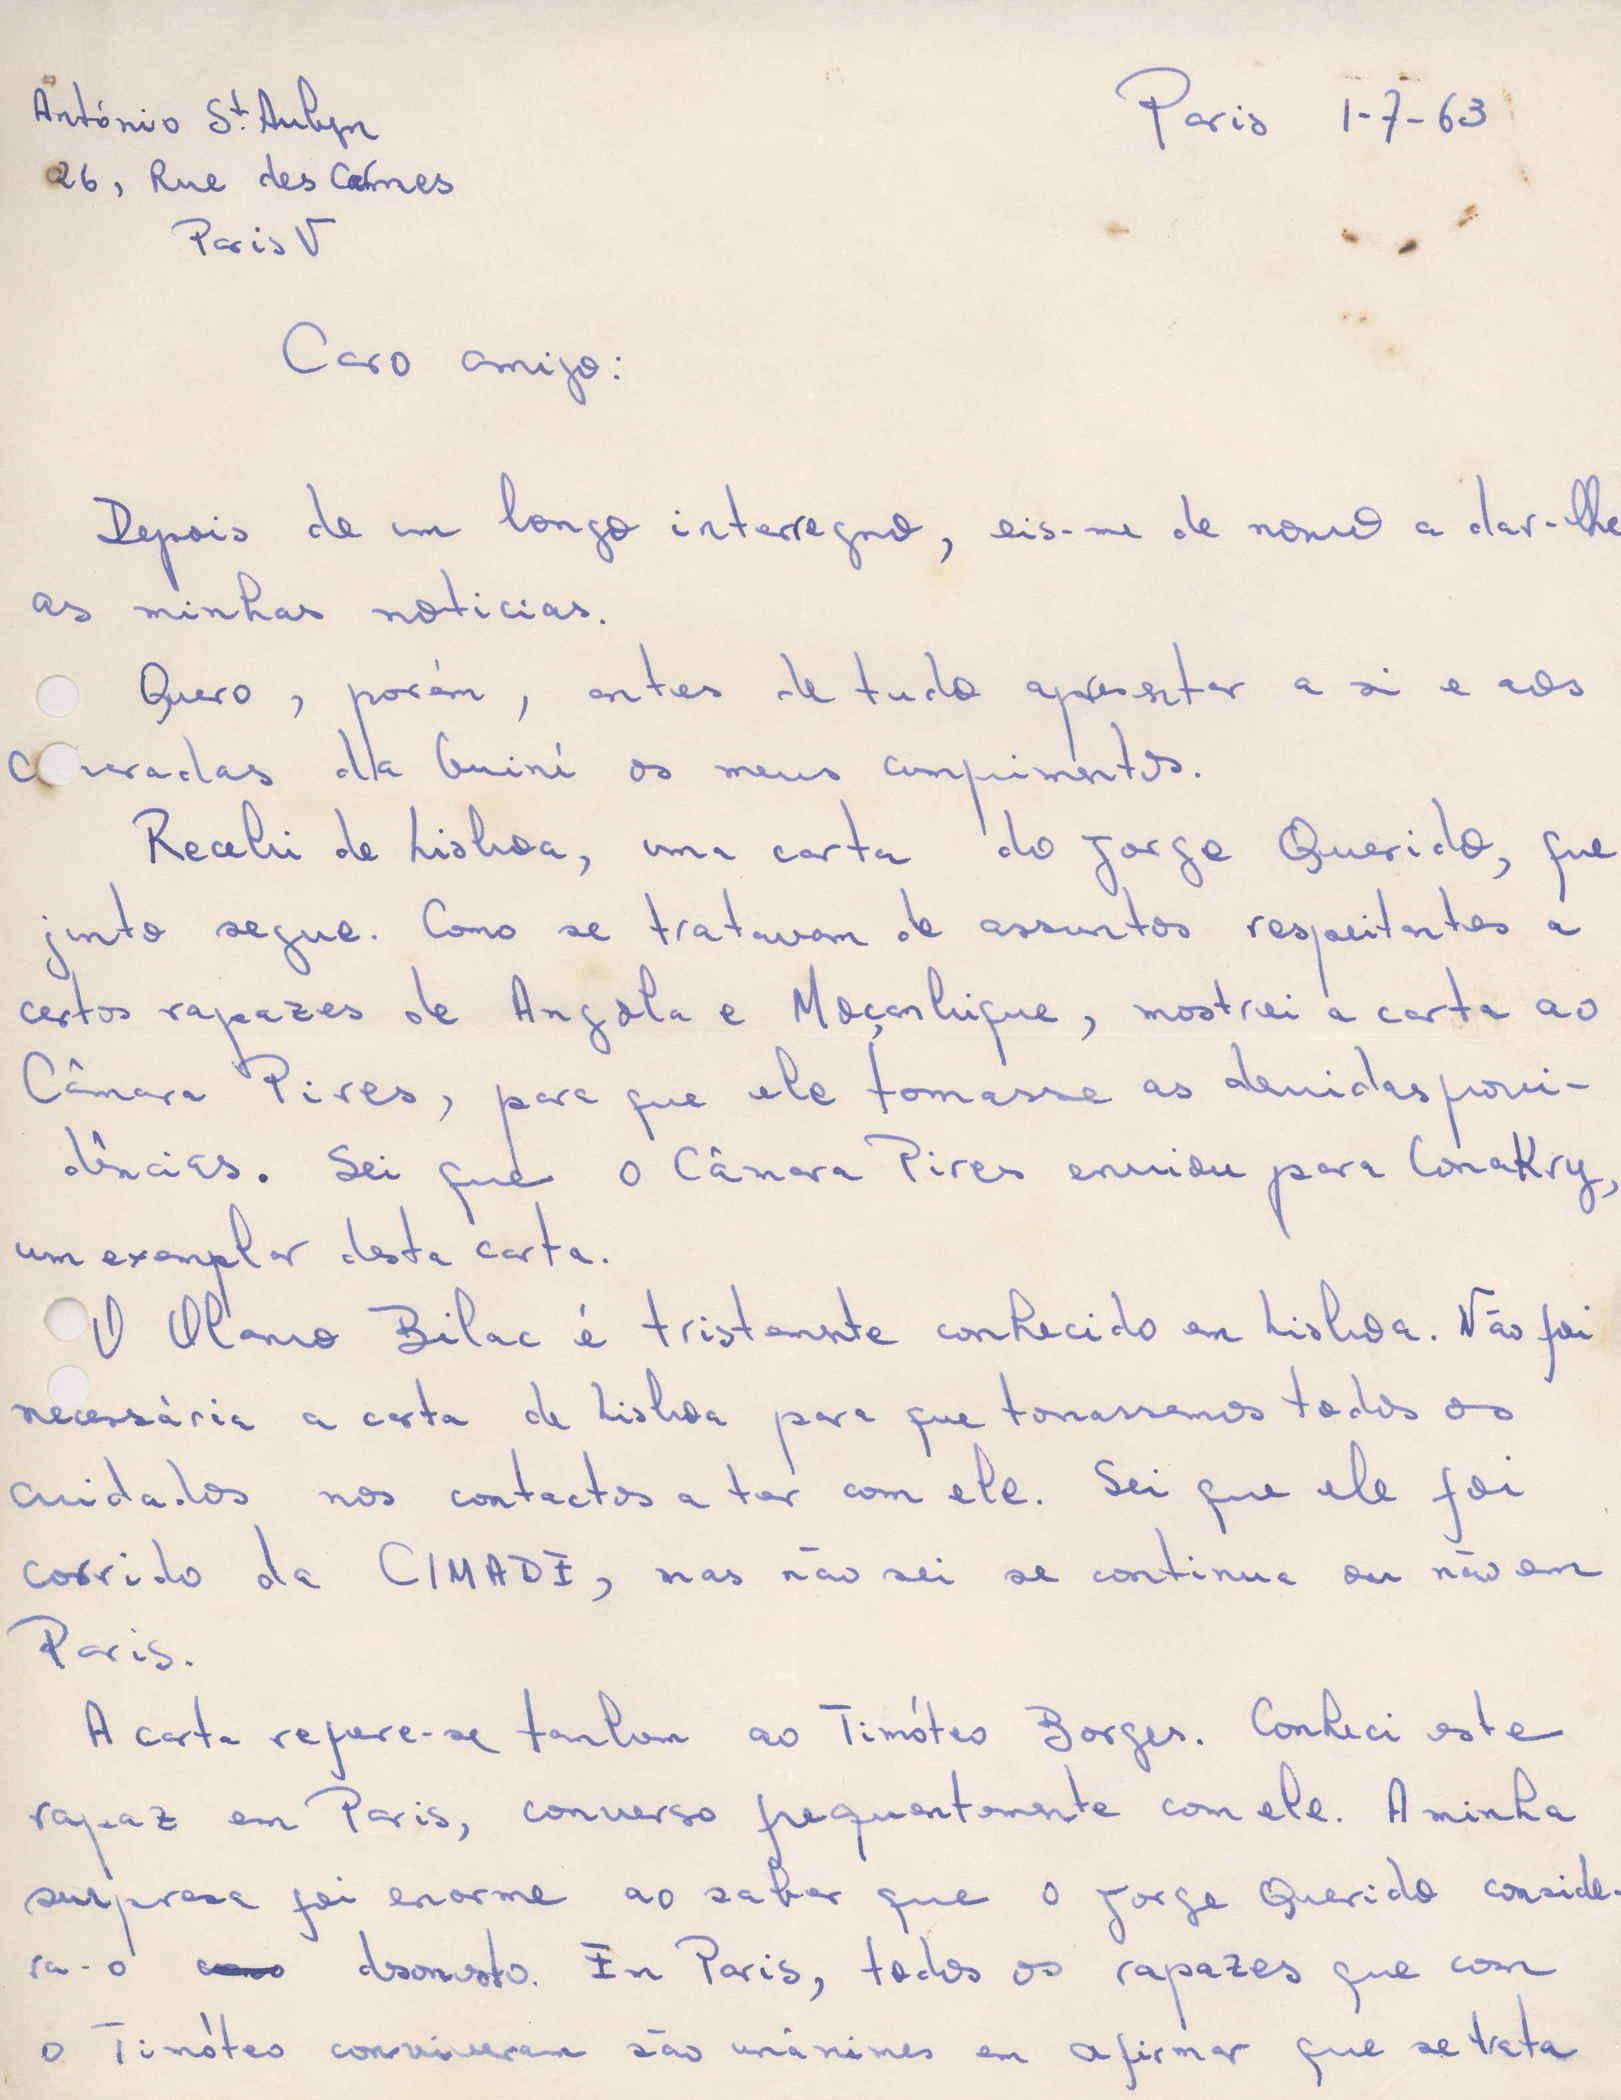 António St. Aubyn
Paris 1-7-63
26, Rue des Carmes
Paris V
Caro amigo:
Depois de um longo interregno, eis-me de novo a dar-lhe
as minhas noticias.
Quero, porém, antes de tudo apresentar a si e aos
camaradas da Guiné os meus cumprimentos.
Recebi de Lisboa, uma carta do Jorge Querido, que
junto segue. Como se tratavam de assuntos respeitantes a
certos rapazes de Angola e Moçambique, mostrei a carta ao
Câmara Pires, para que ele tomasse as devidas provi-
dências. Sei que o Câmara Pires enviou para Conakry,
um exemplar desta carta.
O Olavo Bilac é tristemente conhecido em Lisboa. Não foi
necessária a carta de Lisboa para que tomassemos todos os
cuidados nos contactos a ter com ele. Sei que ele foi
corrido da CIMADE, mas não sei se continua ou não em
Paris.
A carta refere-se tambem ao Timóteo Borges. Conheci este
rapaz em Paris, converso frequentemente com ele. A minha
surpresa foi enorme ao saber que o Jorge Querido conside-
ra-o como desonesto. Em Paris, todos os rapazes que com
o Timóteo conviveram são unânimes em afirmar que se trata